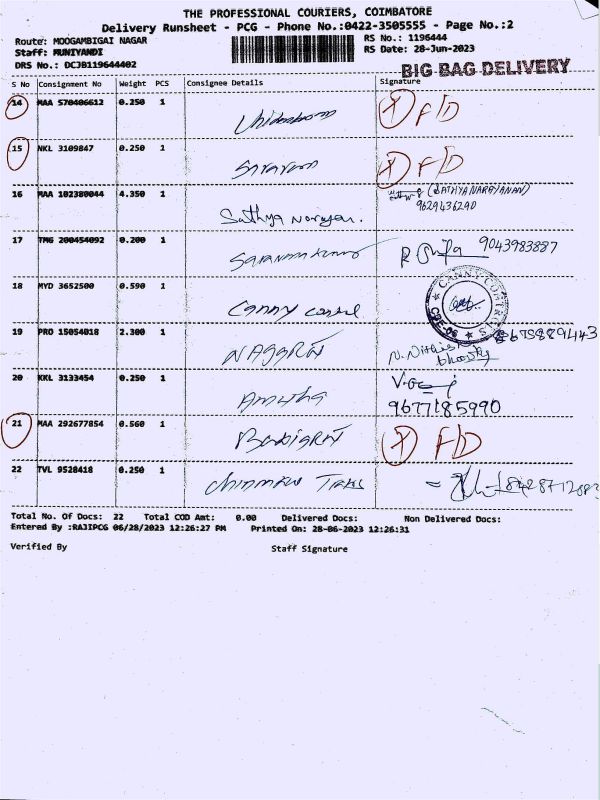 THE PROFESSIONAL COURIERS, COIMBATORE
Delivery Runsheet - PCG - Phone No.:0422-3505555 - Page No.:2
Route: MOOGAMBIGAI NAGAR RS No.: 1196444
Staff: MUNIYANDI RS Date: 28-Jun-2023
DRS No.: DCJB119644402
BIG BAG DELIVERY
S No Consignment No Weight PCS Consignee Details Signature
14 MAA 570406612 0.250 1 F/D
15 NKL 3109847 0.250 1 F/D
16 MAA 102380044 4.350 1 Sathya Narayan. (SATHYANARAYANAN)
9629436240
17 TMG 200454092 0.200 1 9043983887
18 MYD 3652500 0.590 1 Canny CANNY CONTROLS CBE-06
19 PRO 15054018 2.300 1 NAGARAJ
20 KKL 3133454 0.250 1 Amutha
9677185990
21 MAA 292677854 0.560 1 F/D
22 TVL 9528418 0.250 1
Total No. Of Docs: 22 Total COD Amt: 0.00 Delivered Docs: Non Delivered Docs:
Entered By :RAJIPCG 06/28/2023 12:26:27 PM Printed On: 28-06-2023 12:26:31
Verified By Staff Signature